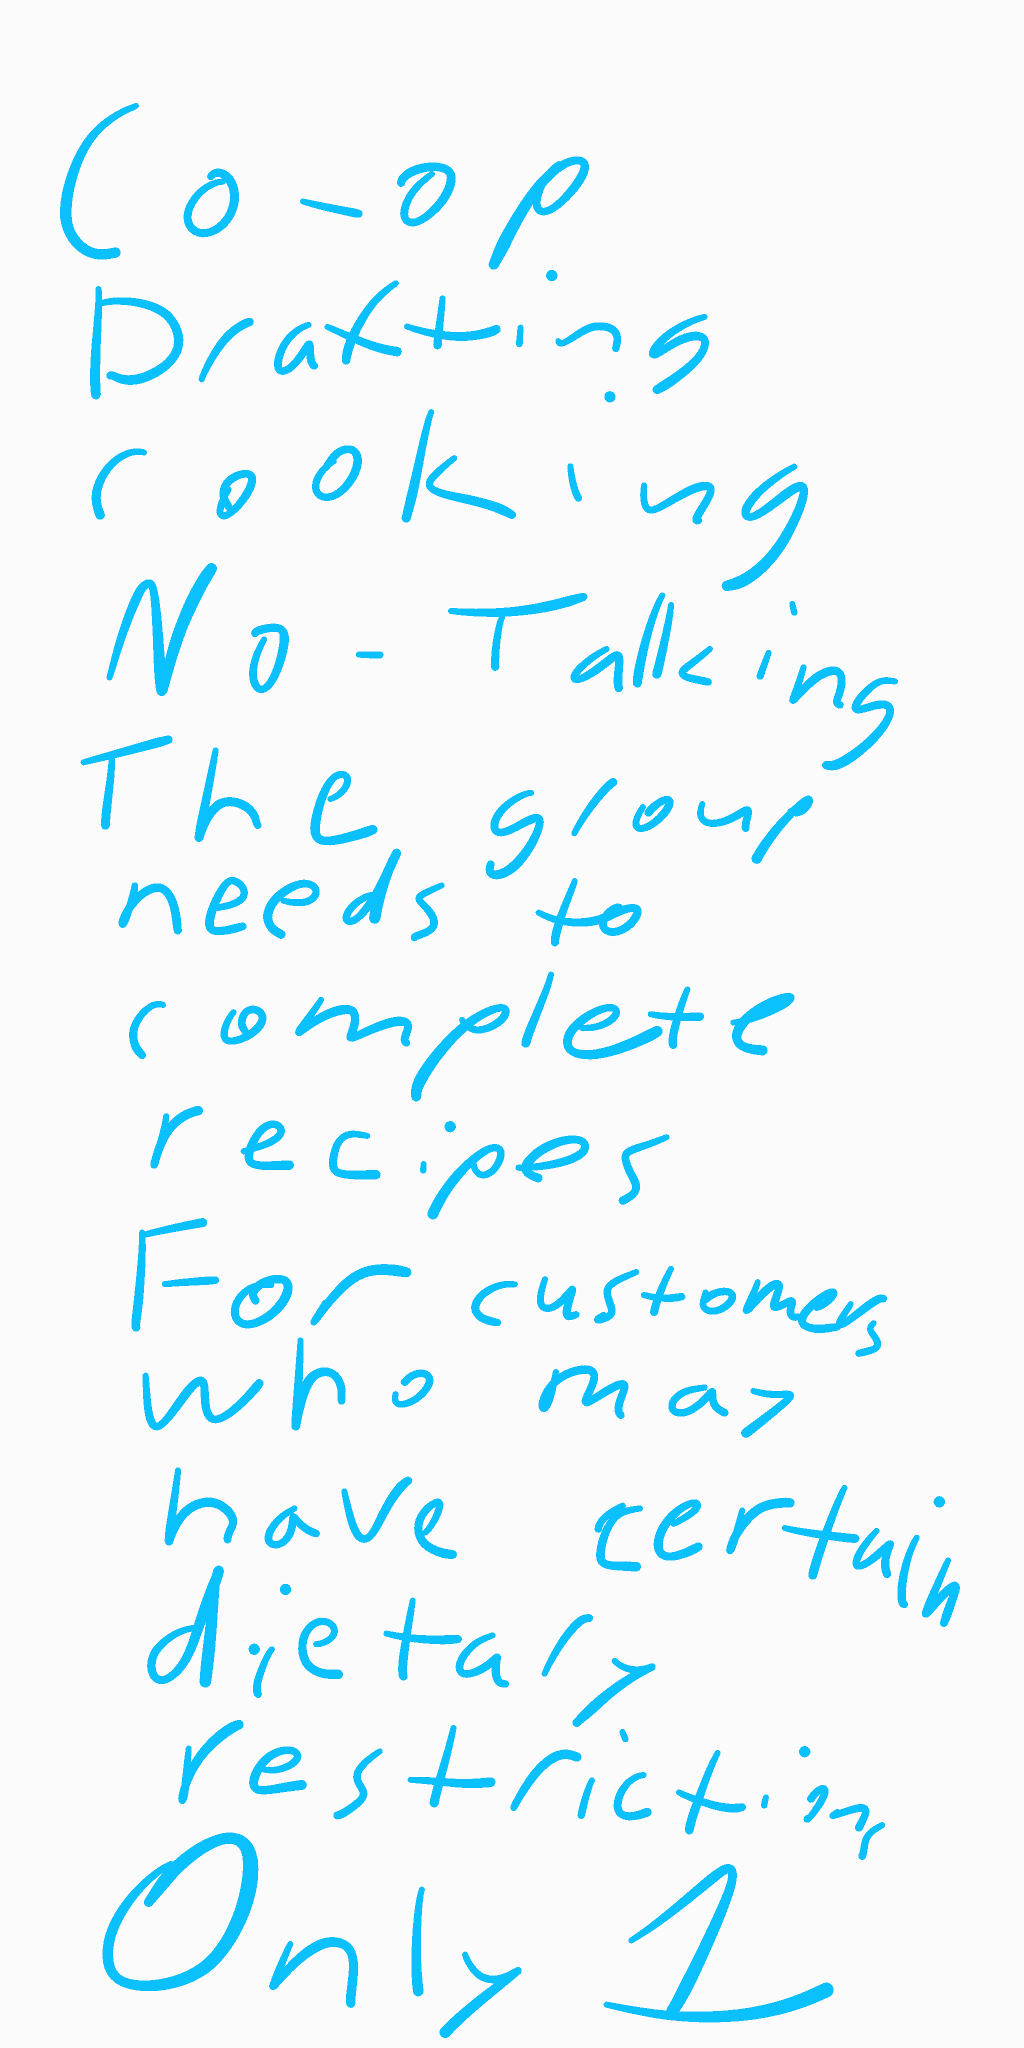 Co-op
Drafting
cooking
No-Talking
The group
needs to
complete
recipes
For customers
who may
have certain
dietary
restrictions
Only 1